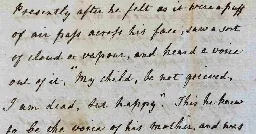 Presently after he felt as it were a puff
of air pass across his face, saw a sort
of cloud or vapour, and heard a voice
out of it, "My child, be not grieved,
I am dead, but happy". This he knew
to be the voice of his mother, and was